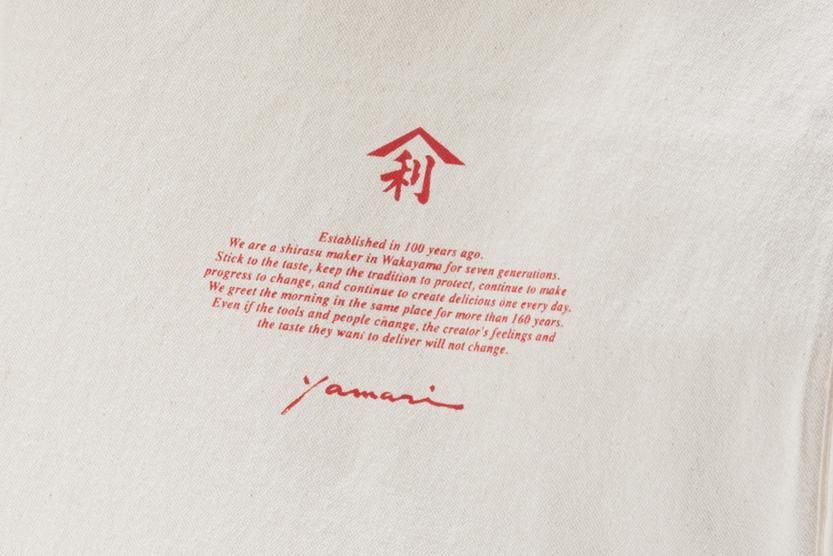 利
Established in 100 years ago.
We are a shirasu maker in Wakayama for seven generations.
Stick to the taste, keep the tradition to protect, continue to make
progress to change, and continue to create delicious one every day.
We greet the morning in the same place for more than 160 years.
Even if the tools and people change, the creator's feelings and
the taste they want to deliver will not change.
Yamari